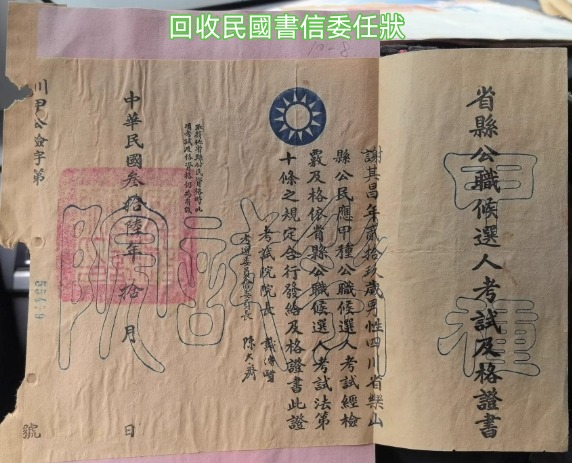 回收民國書信委任狀
省縣公職候選人考試及格證書
甲種
謝其昌年貳拾玖歲男性四川省樂山
縣公民應甲種公職候選人考試經檢
覈及格依省縣公職候選人考試法第
十條之規定合行發給及格證書此證
考試院院長 戴傳賢
考選委員會委員長 陳大齊
中華民國叁拾陸年拾月 日
川甲公證字第
號